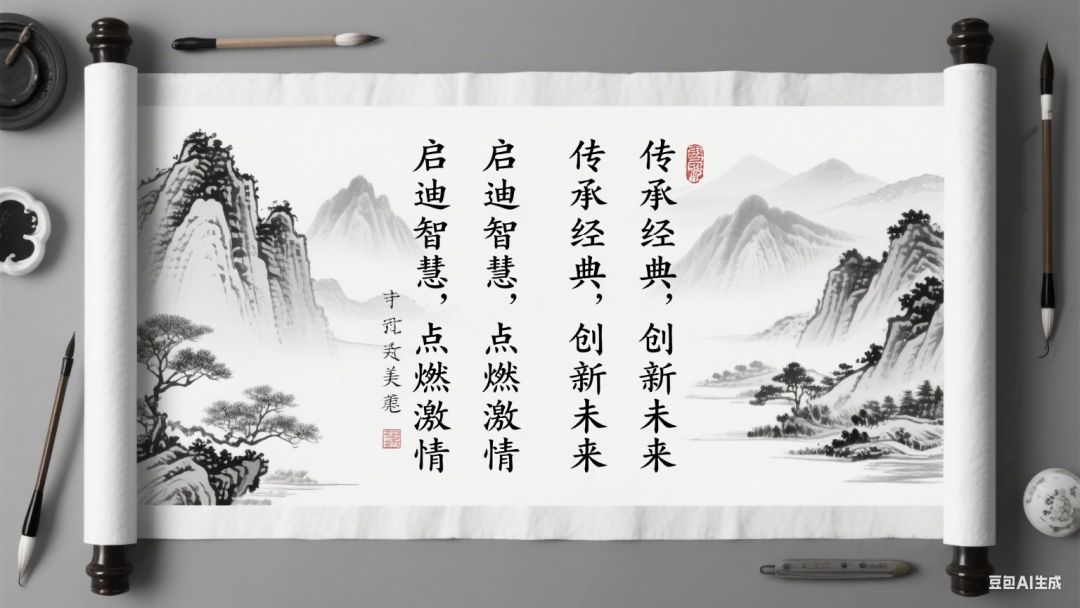 传承经典，创新未来
传承经典，创新未来
启迪智慧，点燃激情
启迪智慧，点燃激情
豆包AI生成